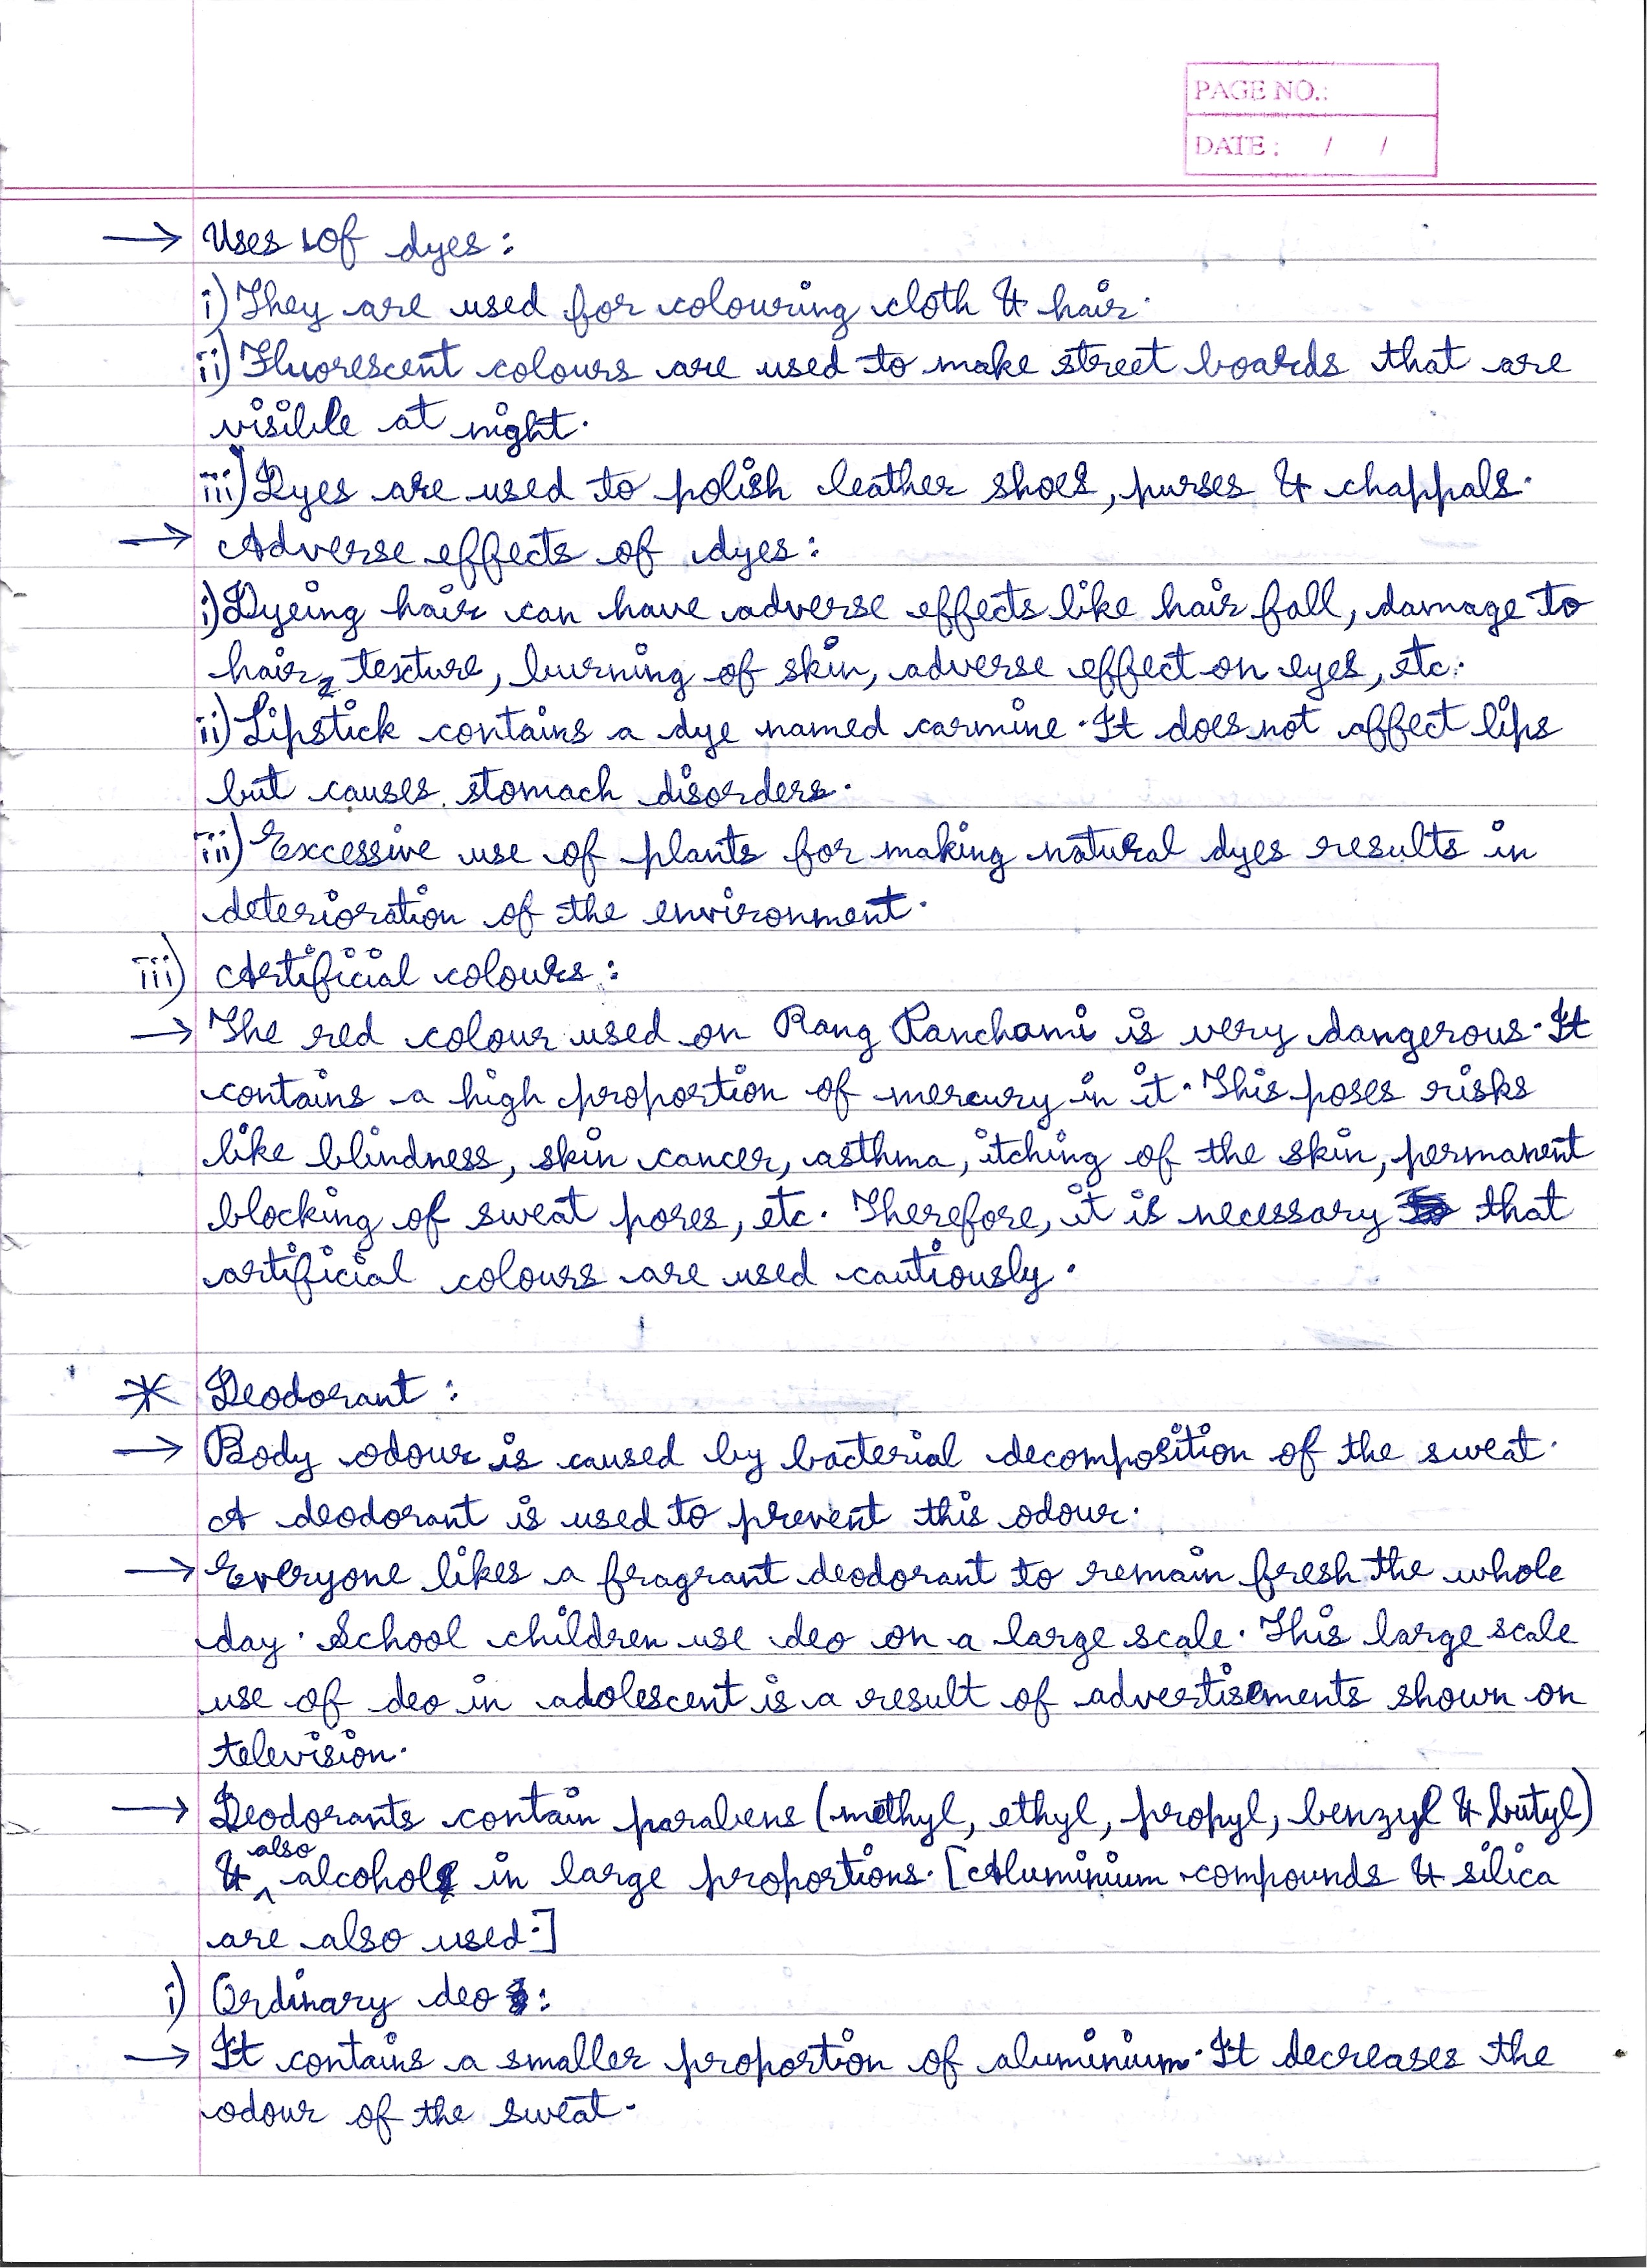 PAGE NO.:
DATE : / /
→ Uses of dyes :
i) They are used for colouring cloth & hair.
ii) Fluorescent colours are used to make street boards that are
visible at night.
iii) Dyes are used to polish leather shoes, purses & chappals.
→ Adverse effects of dyes :
i) Dyeing hair can have adverse effects like hair fall, damage to
hair texture, burning of skin, adverse effect on eyes, etc.
ii) Lipstick contains a dye named carmine. It does not affect lips
but causes stomach disorders.
iii) Excessive use of plants for making natural dyes results in
deterioration of the environment.
iii) Artificial colours :
→ The red colour used on Rang Panchami is very dangerous. It
contains a high proportion of mercury in it. This poses risks
like blindness, skin cancer, asthma, itching of the skin, permanent
blocking of sweat pores, etc. Therefore, it is necessary that
artificial colours are used cautiously.
* Deodorant :
→ Body odour is caused by bacterial decomposition of the sweat.
A deodorant is used to prevent this odour.
→ Everyone likes a fragrant deodorant to remain fresh the whole
day. School children use deo on a large scale. This large scale
use of deo in adolescent is a result of advertisements shown on
television.
→ Deodorants contain parabens (methyl, ethyl, propyl, benzyl & butyl)
& also alcohol in large proportions. [Aluminium compounds & silica
are also used.]
i) Ordinary deo :
→ It contains a smaller proportion of aluminium. It decreases the
odour of the sweat.